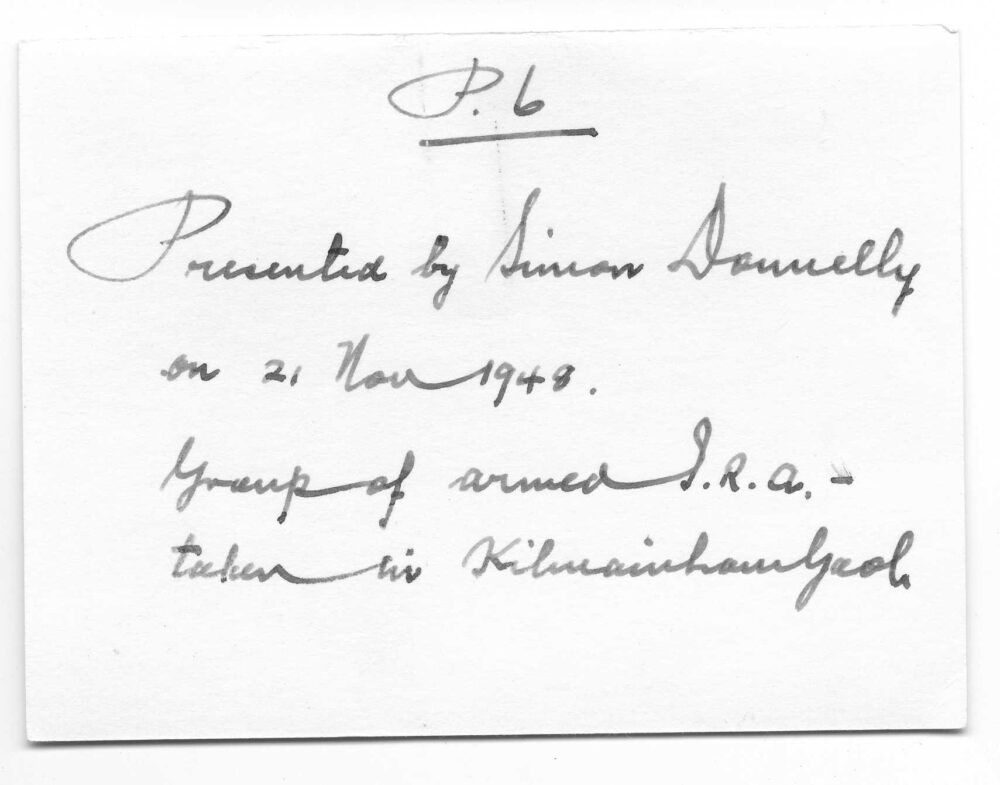 P. 6
Presented by Simon Donnelly
on 21 Nov 1948.
Group of armed I.R.A. -
taken in Kilmainham Gaol.